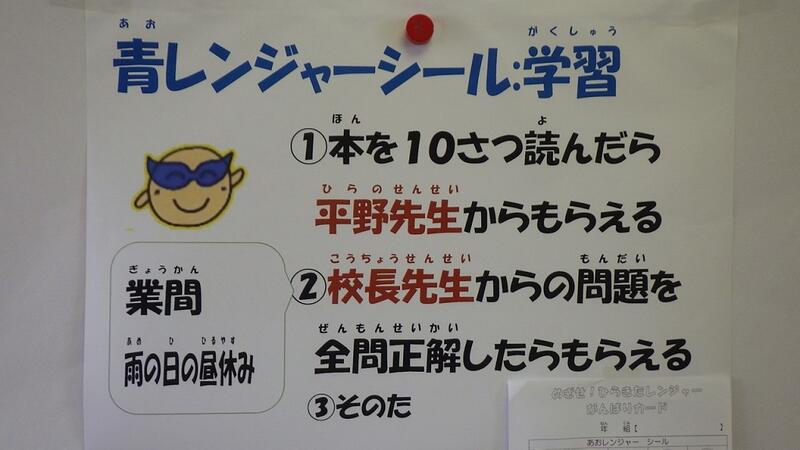 あお がくしゅう
青レンジャーシール:学習
ほん よ
①本を10さつ読んだら
ひらのせんせい
平野先生からもらえる
こうちょうせんせい もんだい
②校長先生からの問題を
ぜんもんせいかい
全問正解したらもらえる
③そのた
ぎょうかん
業間
あめ ひ ひるやす
雨の日の昼休み
めざせ！ひらきたレンジャー
がんばりカード
年 組【 】
あおレンジャー シール